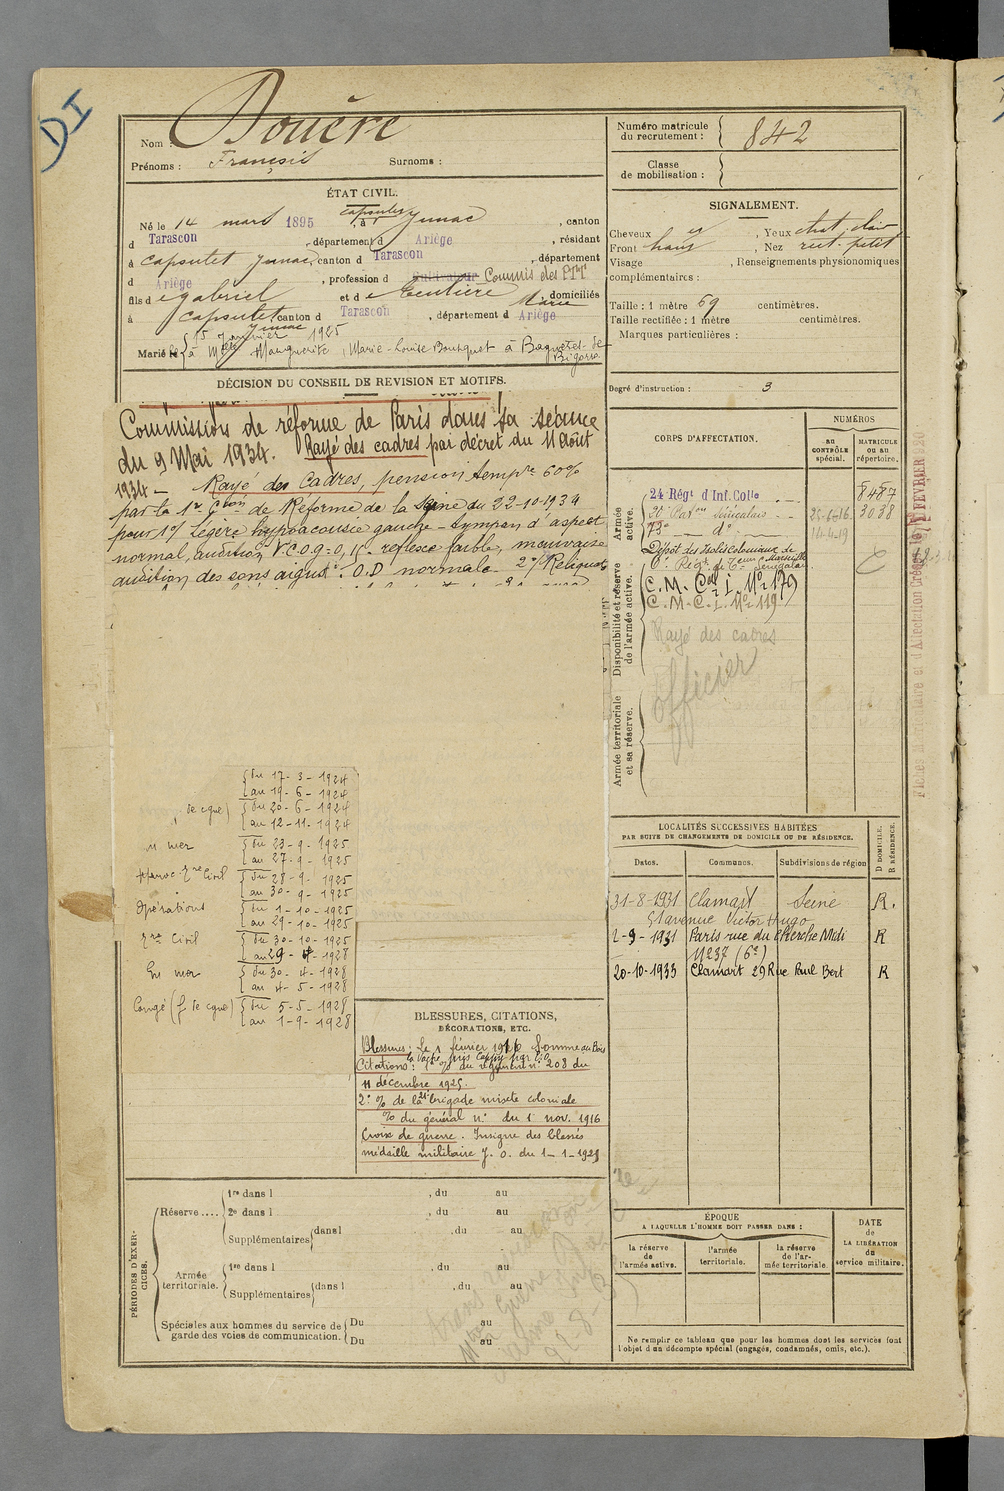 DI
Nom : Douère
Prénoms : François Surnoms :
ÉTAT CIVIL.
Né le 14 mars 1895, à Capoulet Junac, canton
d Tarascon, département d Ariège, résidant
à Capoulet Junac, canton d Tarascon, département
d Ariège, profession d cultivateur Commis des PTT
fils de Gabriel et de Teulière Marie domiciliés
à Capoulet Junac canton d Tarascon, département d Ariège
15 Janvier 1925
Marié le à Marguerite, Marie-Louise Bousquet à Bagnères-de-Bigorre
DÉCISION DU CONSEIL DE REVISION ET MOTIFS.
Commission de réforme de Paris dans sa séance
du 9 Mai 1934. Rayé des cadres par décret du 11 Août
1934 - Rayé des Cadres, pension tempre 60%
par la 1re Cion de Réforme de la Seine du 22-10-1934
pour 1°/ Légère hypoacousie gauche - tympan d'aspect
normal, audition V.C.O.G = 0, reflexe faible, mauvaise
audition des sons aigus. O.D normale - 2°/ Reliquat
du 17-3-1924
au 19-6-1924
de cgne) du 20-6-1924
au 12-11-1924
en mer du 23-9-1925
au 27-9-1925
Maroc-Gre Civil du 28-9-1925
au 30-9-1925
Opérations du 1-10-1925
au 29-10-1925
Gre Civil du 30-10-1925
au 29-4-1928
En mer du 30-4-1928
au 4-5-1928
Congé (f. de cgne) du 5-5-1928
au 1-9-1928
BLESSURES, CITATIONS,
DÉCORATIONS, ETC.
Blessures : Le 1 février 1916 Somme au Bois
la Vache près Cappy par
Citations : 1° % du régiment n° 208 du
11 décembre 1925.
2° % de la 21e brigade mixte coloniale
% du général n° du 1 nov. 1916
Croix de guerre. Insigne des blessés
médaille militaire J. O. du 1-1-1925
PÉRIODES D'EXERCICES.
Réserve .... 1re dans l , du au
2e dans l , du au
Supplémentaires dans l , du au
Armée territoriale. 1re dans l , du au
Supplémentaires dans l , du au
Spéciales aux hommes du service de garde des voies de communication. Du au
Du au
Numéro matricule du recrutement : 842
Classe de mobilisation :
SIGNALEMENT.
Cheveux , Yeux chat. clair
Front haut , Nez rect. petit
Visage , Renseignements physionomiques
complémentaires :
Taille : 1 mètre 69 centimètres.
Taille rectifiée : 1 mètre centimètres.
Marques particulières :
Degré d'instruction : 3
CORPS D'AFFECTATION.
NUMÉROS
au CONTRÔLE spécial.
MATRICULE ou au répertoire.
Armée active.
24 Régt d'Inf. Colle 8487
Baton Sénégalais 25-6-16 3038
73e d° 14-4-19
Disponibilité et réserve de l'armée active.
Dépôt des Isolés coloniaux de Marseille
6e Régt de Teurs Sénégalais
C. M. Cal I. N° 179
C. M. C. I. N° 119
Rayé des cadres
officier
Armée territoriale et sa réserve.
LOCALITÉS SUCCESSIVES HABITÉES
PAR SUITE DE CHANGEMENTS DE DOMICILE OU DE RÉSIDENCE.
Dates. Communes. Subdivisions de région D DOMICILE. R RÉSIDENCE.
31-8-1931 Clamart Seine R.
51 avenue Victor Hugo
2-9-1931 Paris rue du Cherche Midi R
N° 237 (6e)
20-10-1933 Clamart 29 Rue Paul Bert R
ÉPOQUE
A LAQUELLE L'HOMME DOIT PASSER DANS :
la réserve de l'armée active.
l'armée territoriale.
la réserve de l'armée territoriale.
DATE de LA LIBÉRATION du service militaire.
Ne remplir ce tableau que pour les hommes dont les services font
l'objet d'un décompte spécial (engagés, condamnés, omis, etc.).